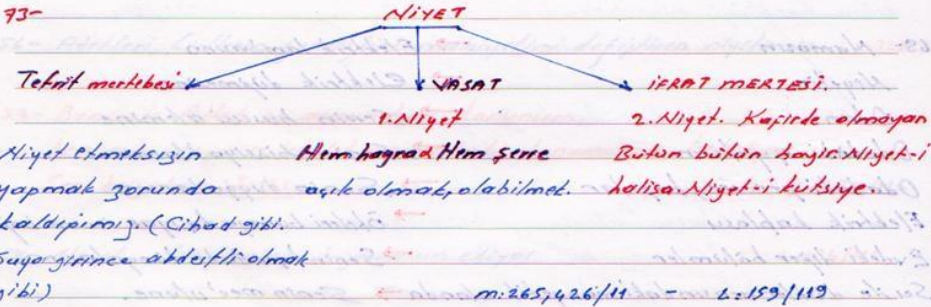 73-
NİYET
Tefrit mertebesi
Niyet etmeksizin
yapmak zorunda
kaldığımız. (Cihad gibi.
Suya girince abdestli olmak
gibi)
VASAT
1. Niyet
Hem hayra Hem şerre
açık olmak, olabilmek.
İFRAT MERTESİ.
2. Niyet. Kafirde olmayan
Bütün bütün hayır. Niyet-i
halisa. Niyet-i kutsiye.
m: 265, 426/11 - L: 159/119